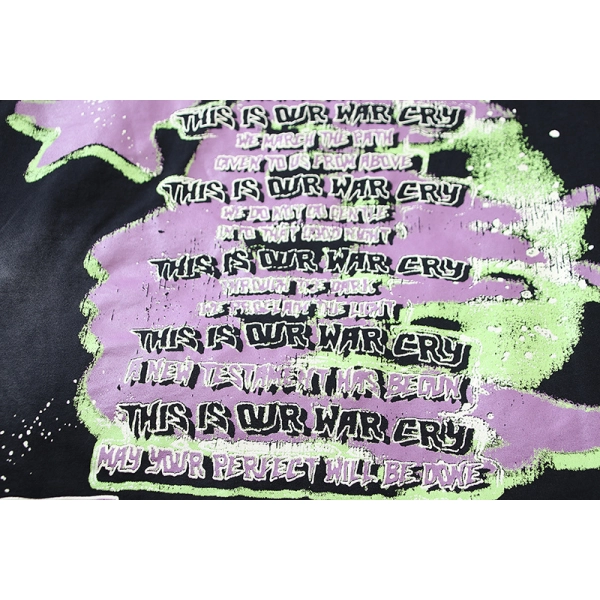 THIS IS OUR WAR CRY
WE MARCH THE PATH
GIVEN TO US FROM ABOVE
THIS IS OUR WAR CRY
WE DO NOT GO GENTLE
INTO THAT GOOD NIGHT
THIS IS OUR WAR CRY
THROUGH THE DARK
WE PROCLAIM THE LIGHT
THIS IS OUR WAR CRY
A NEW TESTAMENT HAS BEGUN
THIS IS OUR WAR CRY
MAY YOUR PERFECT WILL BE DONE